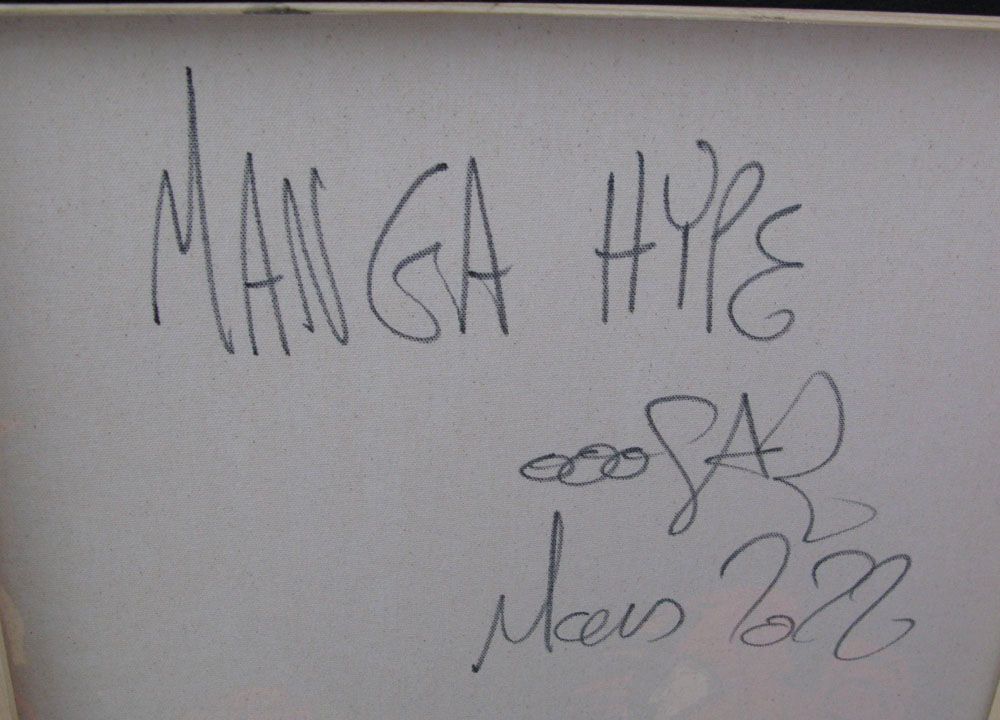 MANGA HYPE
Mars 2022